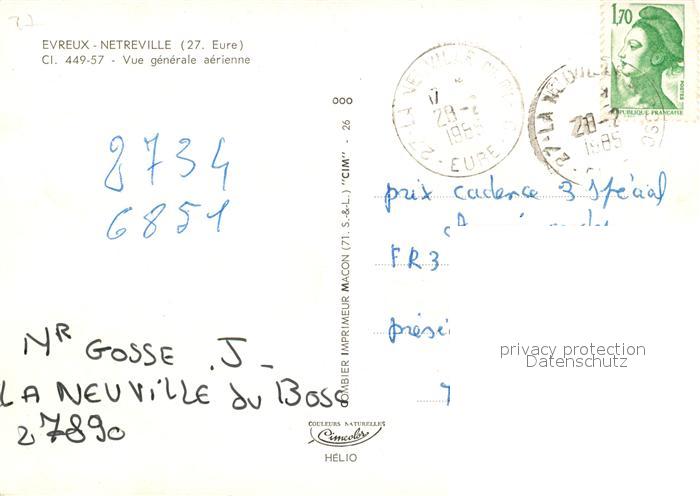 EVREUX - NETREVILLE (27. Eure)
Cl. 449-57 - Vue générale aérienne
8734
6851
Mr GOSSE . J -
LA NEUVILLE du BOSC
27890
COMBIER IMPRIMEUR MACON (71. S.-&-L.) "CIM" - 26
COULEURS NATURELLES
Cimcolor
HÉLIO
27-LA NEUVILLE DU BOSC
28-2
1985
EURE
27-LA NEUVILLE
28-2
1985
1,70
POSTES
REPUBLIQUE FRANÇAISE
prix cadence 3 Spécial
FR3
privacy protection
Datenschutz